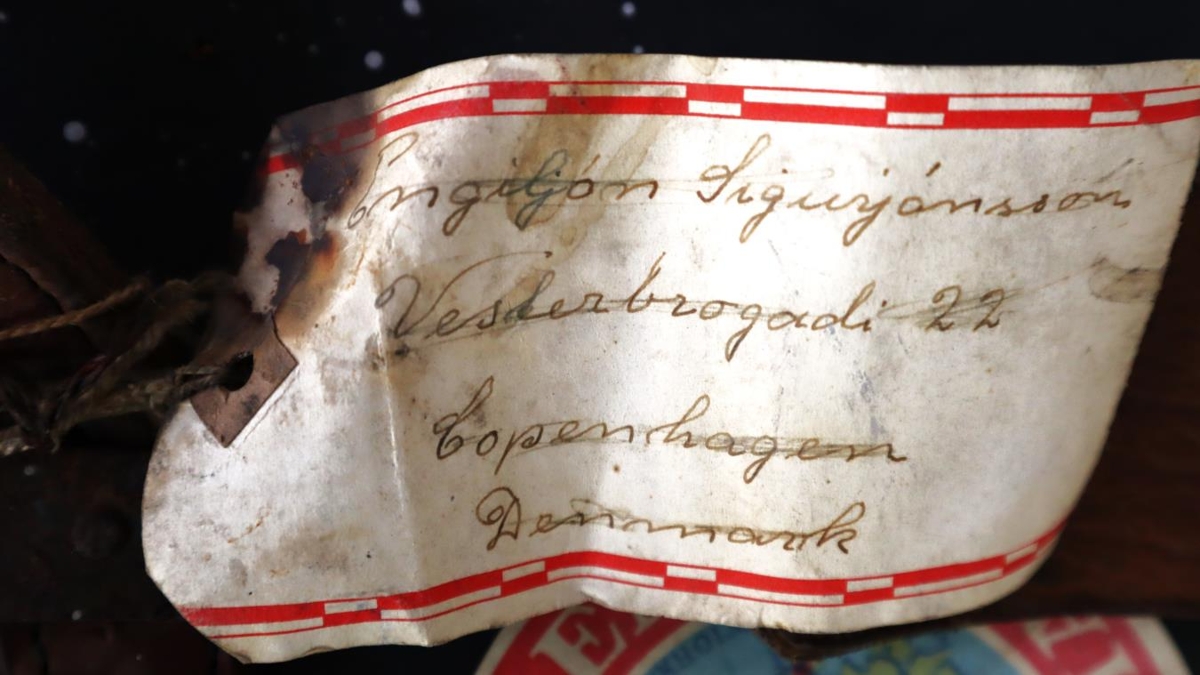 Engiljón Sigurjónsson
Vesterbrogadi 22
Copenhagen
Denmark